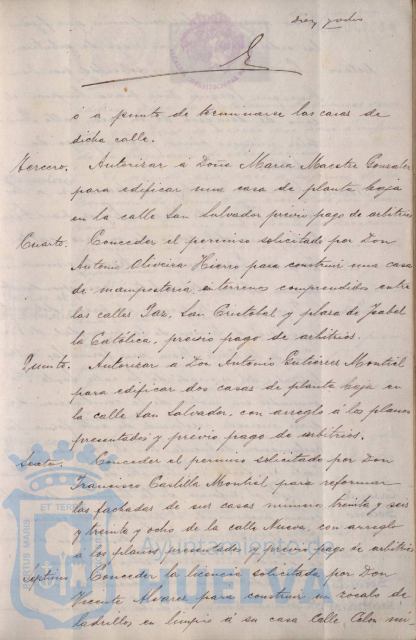 diez y ocho
ó á punto de terminarse las casas de
dicha calle.
Tercero. Autorizar á Doña Maria Maestre Gonzalez
para edificar una casa de planta baja
en la calle San Salvador previo pago de arbitrios
Cuarto. Conceder el permiso solicitado por Don
Antonio Oliveira Hierro para construir una casa
de mampostería, en terreno comprendidos entre
las calles Paz, San Cristobal y plaza de Isabel
la Católica, previo pago de arbitrios.
Quinto. Autorizar á Don Antonio Gutierres Montiel
para edificar dos casas de planta baja en
la calle San Salvador, con arreglo á los planos
presentados y previo pago de arbitrios.
Sexto. Conceder el permiso solicitado por Don
Francisco Castilla Montiel para reformar
las fachadas de sus casas numero treinta y seis
y treinta y ocho de la calle Nueva, con arreglo
á los planos presentados y previo pago de arbitrios
Septimo. Conceder la licencia solicitada por Don
Vicente Alvarez para construir un zocalo de
ladrillos en limpio á su casa Calle Colon nu-
PORTUS MARIS ET TERRAE
Ayuntamiento de
HUELVA